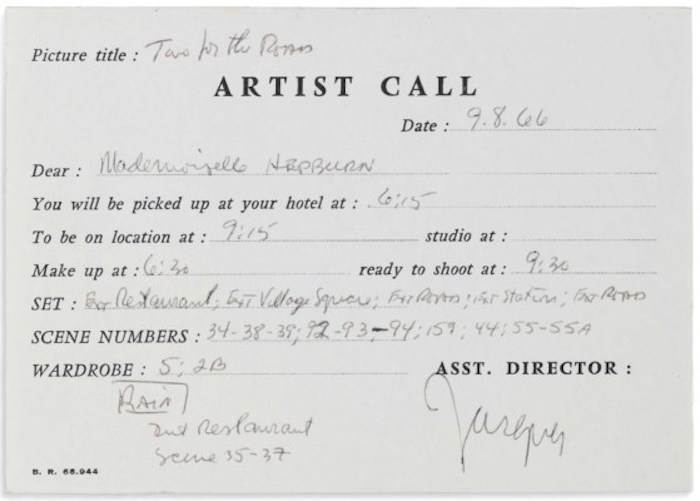 Picture title : Two for the Road
ARTIST CALL
Date : 9.8.66
Dear : Mademoiselle HEPBURN
You will be picked up at your hotel at : 6:15
To be on location at : 9:15 studio at :
Make up at : 6:30 ready to shoot at : 9:30
SET : Ext Restaurant; EXT Village Square; Ext Road; Ext Station; Ext Road
SCENE NUMBERS : 34-38-39; 92-93-94; 159; 44; 55-55A
WARDROBE : 5; 2B ASST. DIRECTOR :
RAIN
Int Restaurant
Scene 35-37
B. R. 66.944